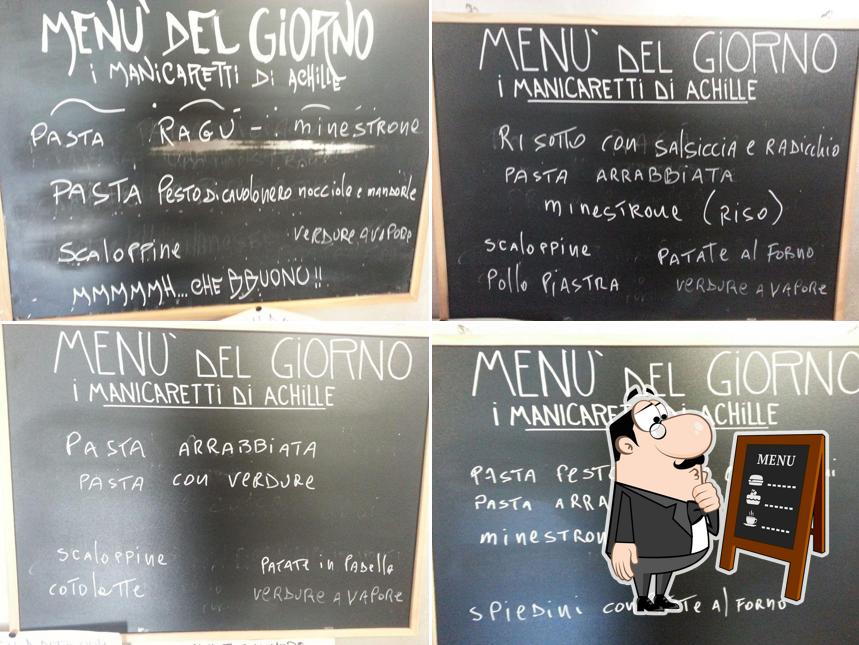 MENU' DEL GIORNO
i MANICARETTI Di ACHILLE
PASTA RAGU' - minESTRONE
PASTA PESTO Di CAVOLONERO nocciole e mandorle
VERDURE A VAPORE
SCALOPPINE
MMMMMH... CHE BBUONO!!
MENU' DEL GiORNO
i MANICARETTI Di ACHILLE
RISOTTO con SALSICCIA e RADICCHIO
PASTA ARRABBIATA
minESTRONE (RISO)
SCALOPPINE PATATE al FORNO
POLLO PIASTRA VERDURE A VAPORE
MENU' DEL GIORNO
i MANICARETTI Di ACHILLE
PASTA ARRABBIATA
PASTA con VERDURE
SCALOPPINE PATATE in PADELLA
COTOLETTE VERDURE A VAPORE
MENU' DEL GIORNO
i MANICARETTI Di ACHILLE
PASTA
PASTA
SPIEDINI al FORNO
MENU